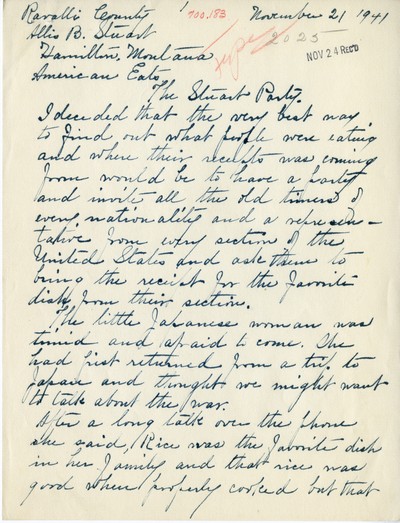 Ravalli County 1 700.183 November 21 1941
Allis B. Stuart 2025
Hamilton, Montana type NOV 24 REC'D
American Eats
The Stuart Party.
I decided that the very best way
to find out what people were eating
and where their receipts was coming
from would be to have a party
and invite all the old timers of
every nationality and a represen-
tative from every section of the
United States and ask them to
bring the receipt for the favorite
dish from their section.
The little Japanese woman was
timid and afraid to come. She
had just returned from a trip to
Japan and thought we might want
to talk about the war.
After a long talk over the phone
she said, Rice was the favorite dish
in her family and that rice was
good when properly cooked but that